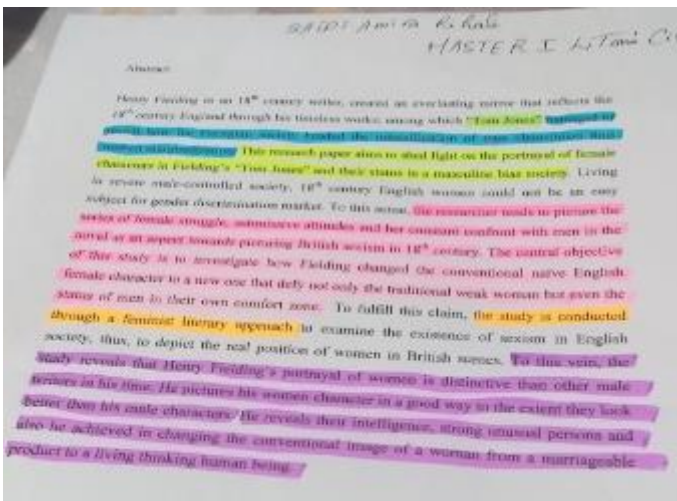 SAIDI Amira Rihab
MASTER I Li
Abstract
Henry Fielding in an 18th century writer, created an everlasting mirror that reflects the
18th century England through his timeless works, among which "Tom Jones" managed to
how the society the of
This research paper aims to shed light on the portrayal of female
characters in Fielding's "Tom Jones" and their status in a masculine bias society. Living
in severe male-controlled society, 18th century English women could not be an easy
subject for gender discrimination market. To this sense, the researcher tends to picture the
series of female struggle, submissive attitudes and her constant confront with men in the
novel as an aspect towards picturing British sexism in 18th century. The central objective
of this study is to investigate how Fielding changed the conventional naive English
female character to a new one that defy not only the traditional weak woman but even the
status of men in their own comfort zone. To fulfill this claim, the study is conducted
through a feminist literary approach to examine the existence of sexism in English
society, thus, to depict the real position of women in British scenes. To this vein, the
study reveals that Henry Fielding's portrayal of women is distinctive than other male
writers in his time. He pictures his women character in a good way to the extent they look
better than his male characters. He reveals their intelligence, strong unusual persona and
also he achieved in changing the conventional image of a woman from a marriageable
product to a living thinking human being.